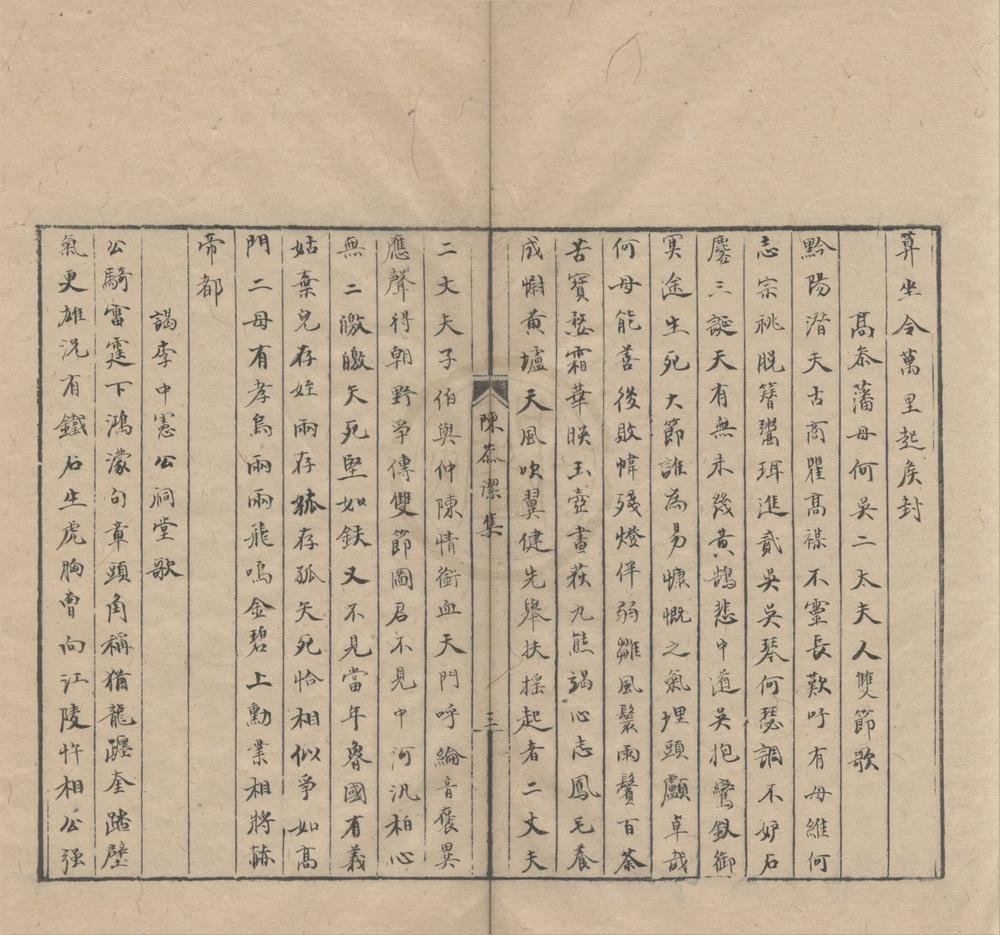 算坐令萬里起矦封
高叅藩母何吳二太夫人雙節歌
黔陽潛夫古高瞿高禖不靈長歎吁有母維何
志宗祧脱簪鬻珥進貳吳吳琴何瑟調不妒石
麐三誕天有無未幾黃鵠悲中道吳抱鸞釵御
冥途生死大節誰為易慷慨之氣埋頭顱卓哉
何母能善後敗幃殘燈伴弱雛風鬟雨鬢百荼
苦寶婺霜華暎玉壺畫荻丸熊竭心志鳳毛養
成慰黃壚天風吹翼健先舉扶摇起者二丈夫
陳恭潔集
三
二丈夫子伯與仲陳情銜血天門呼綸音褒異
應聲得朝野爭傳雙節圖君不見中河汎柏心
無二皦皦矢死堅如鉄又不見當年魯國有義
姑棄兒存姪兩存孤存孤矢死恰相似爭如高
門二母有孝烏兩兩飛鳴金碧上勳業相將赫
帝都
謁李中憲公祠堂歌
公騎雷霆下鴻濛句章頭角稱猶龍躔奎踏壁
氣更雄況有鐵石生虎胸曹向江陵忤相公强